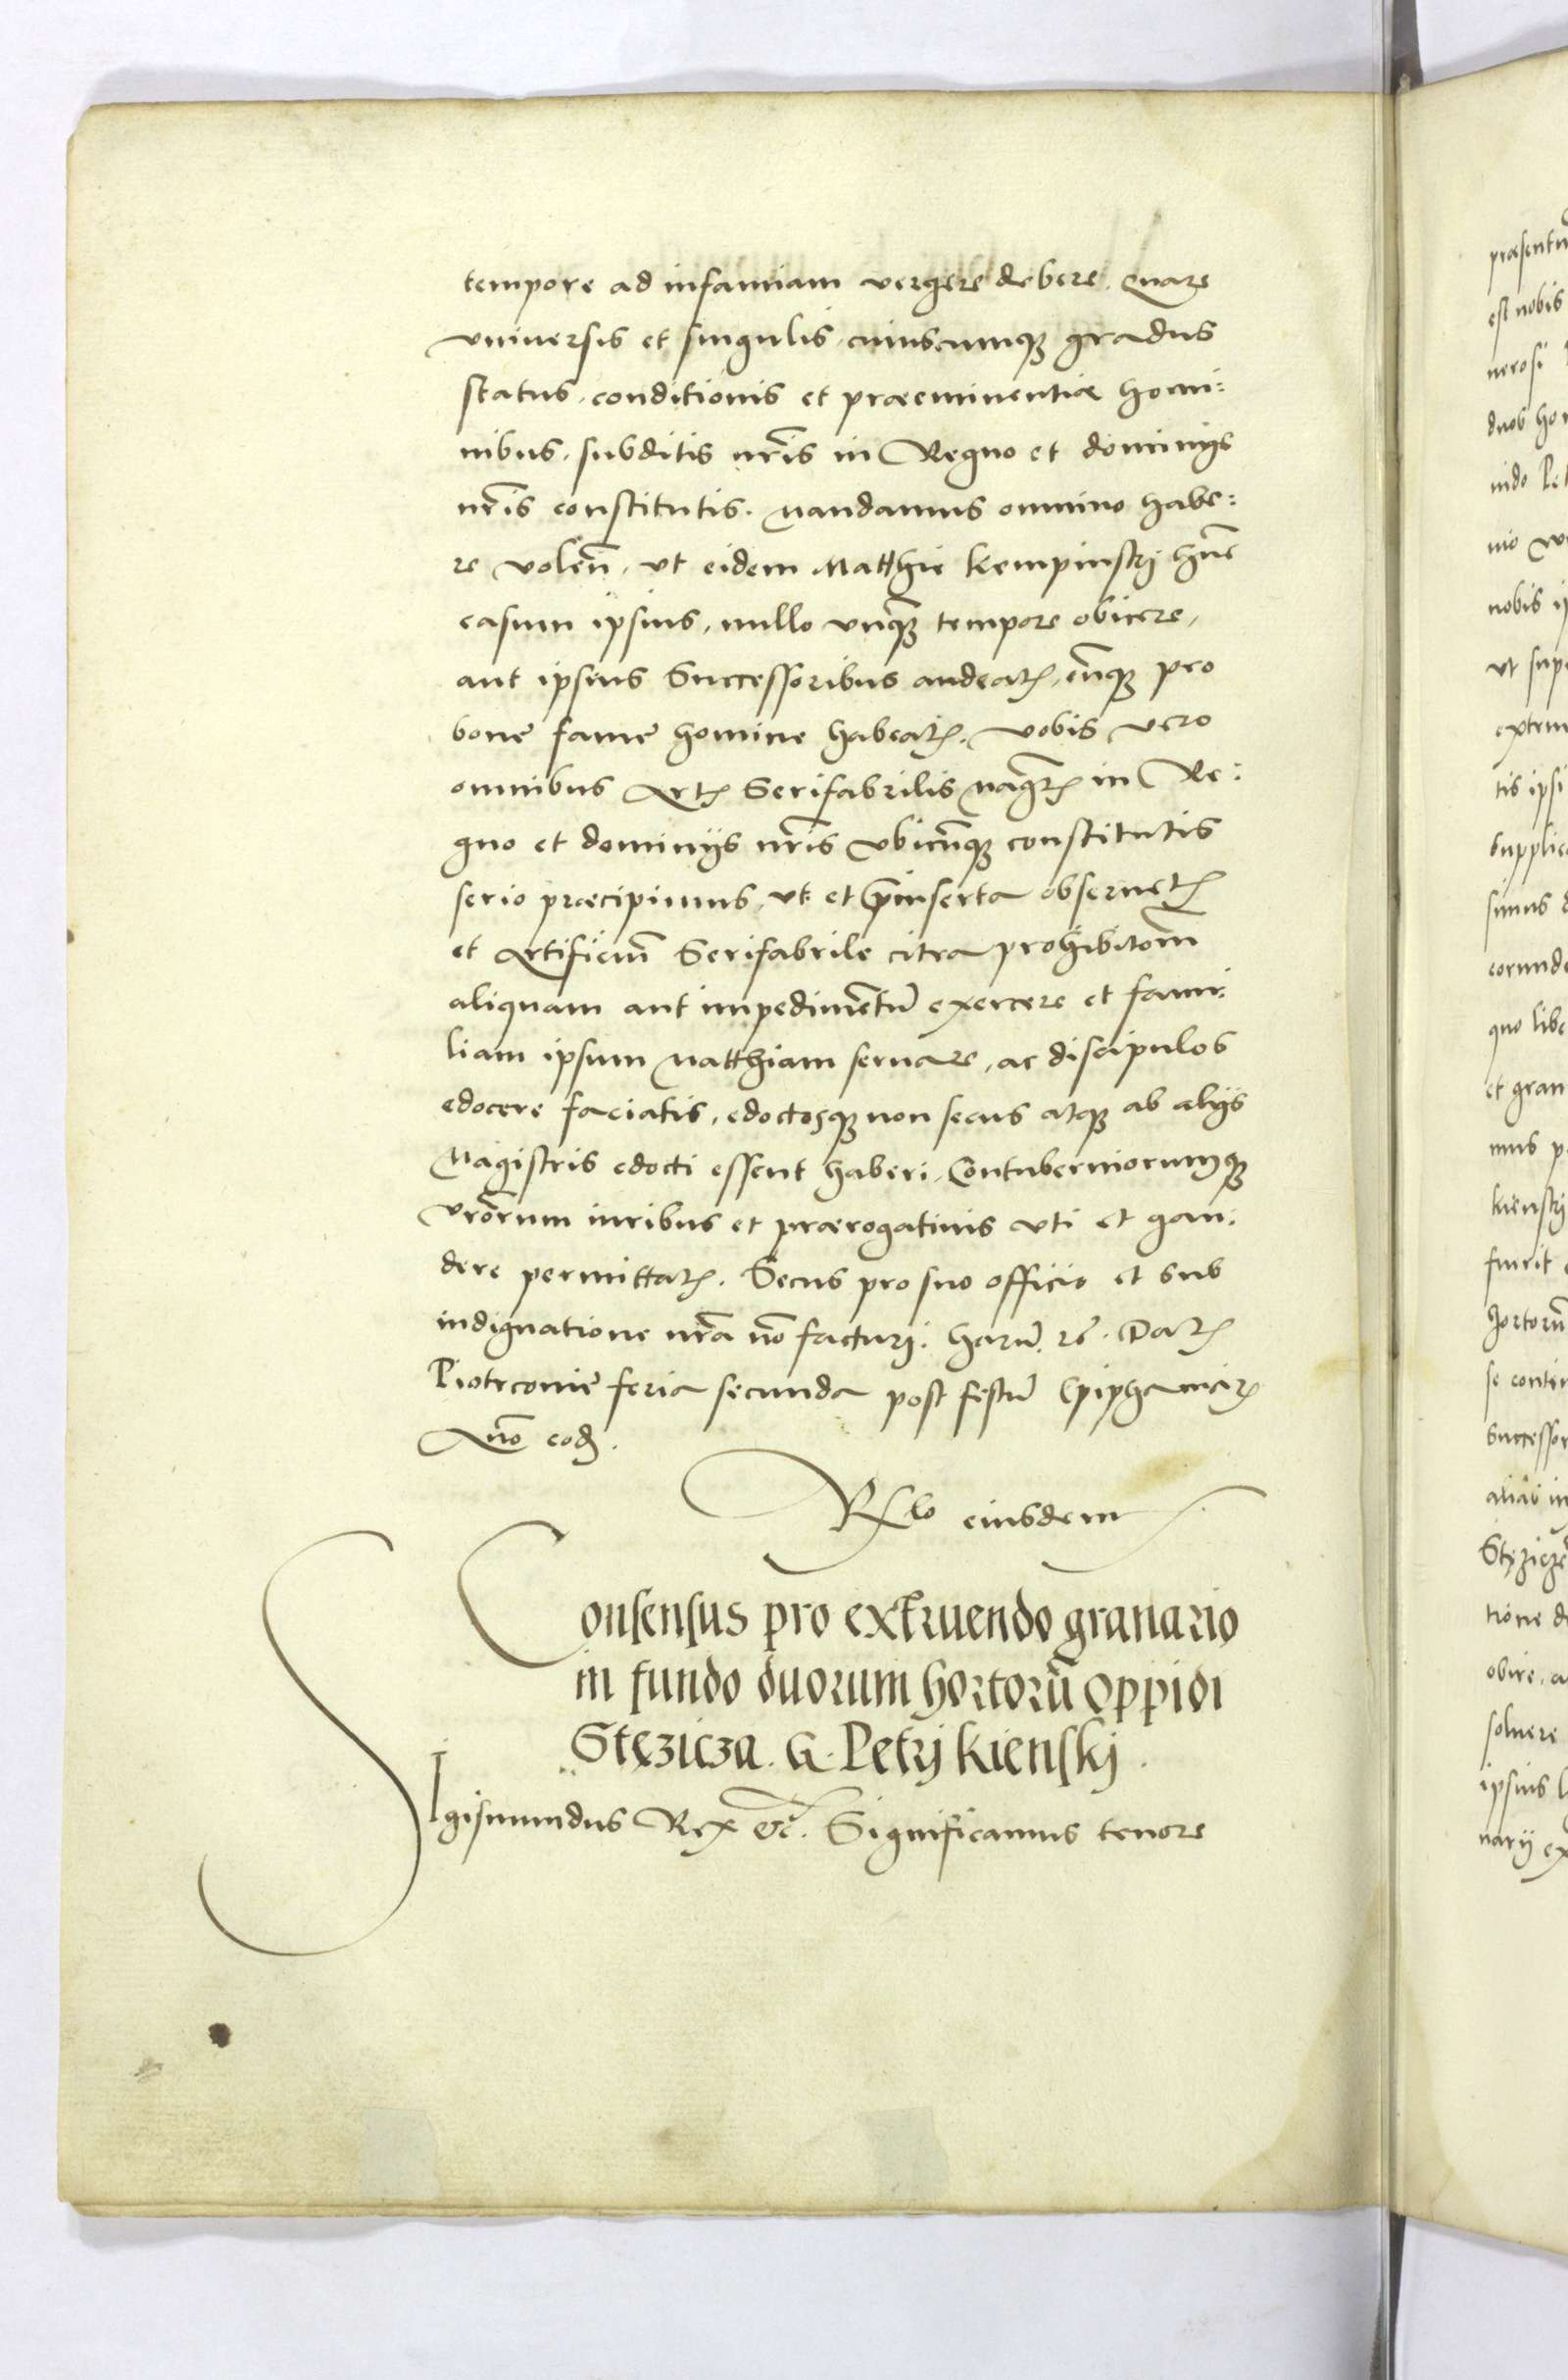 tempore ad infamiam vergere debere. Quare
vniuersis et singulis cuiuscumq gradus
status, conditionis et præeminentiæ homi:
nibus, subditis nr̃is in Regno et dominijs
nr̃is constitutis. Mandamus omnino habe:
re volen̄, vt eidem Matthie Kempinskj hūc
casum ipsius, nullo vnq̄ tempore obicere,
aut ipsius Successoribus audeatis, eūq pro
bone fame homine habeatis. Vobis vero
omnibus Artis Serifabrilis Magr̄is in Re:
gno et dominijs nr̃is vbicūq constitutis
serio præcipimus, vt et p̄inserta obseruetis
et Artificiū Serifabrile citra prohibitōm
aliquam aut impedimētū exercere et fami:
liam ipsum Matthiam seruare, ac discipulos
edocere faciatis, edoctosq non secus atq ab alijs
Magistris edocti essent haberi, Contuberniorumq
vrōrum iuribus et prærogatiuis vti et gau:
dere permittatis. Secus pro suo officio et sub
indignatione nr̃a nō facturj. Harū. rē. Datis
Piotrconie feria secunda post festū Epiphaniæ
Anō eod.
Rlō eiusdem
Consensus pro extruendo granario
in fundo duorum hortorū oppidi
Stęzicza. G. Petrj Kienskj.
SIgismundus Rex &c. Significamus tenore
præsentū
est nobis
nerosi
duob ho
nido Pe
nobis ip
vt supe
tis ipsi
supplic
simus
eorunde
quo libe
et gran
mus p
kienskj
fuerit
hortorū
se contin
Successor
alias in
tione d
obire, a
soluere
ipsius
narij ex